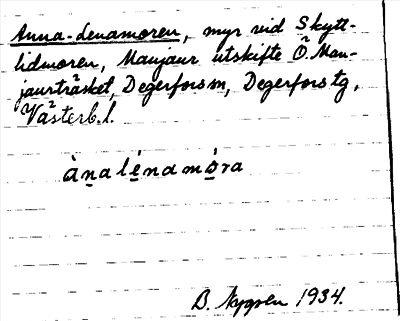 Anna-Lenamoren, myr vid Skytt-
lidmoren, Manjaur utskifte Ö. Man-
jaurträsket, Degerfors sn, Degerfors tg,
Västerb. l.
ànalénamóra
B. Nygren 1934.